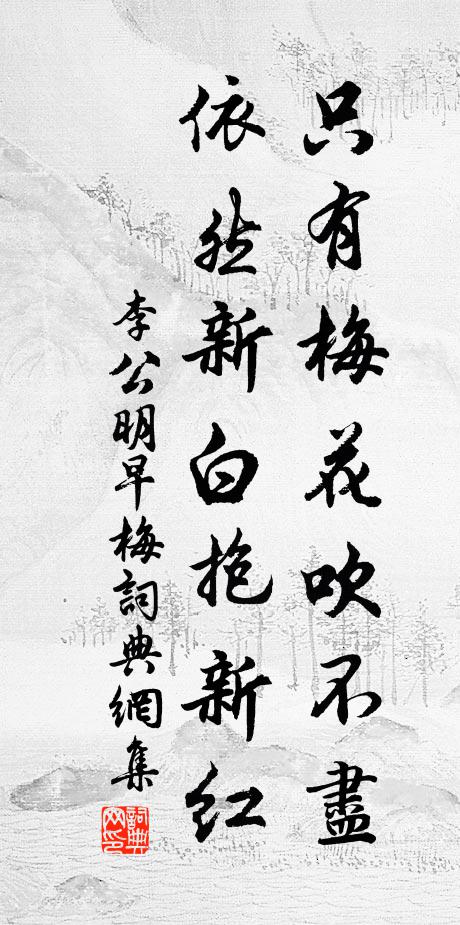 只有梅花吹不盡
依然新白抱新紅
李公明早梅詞典網集
詞典网印